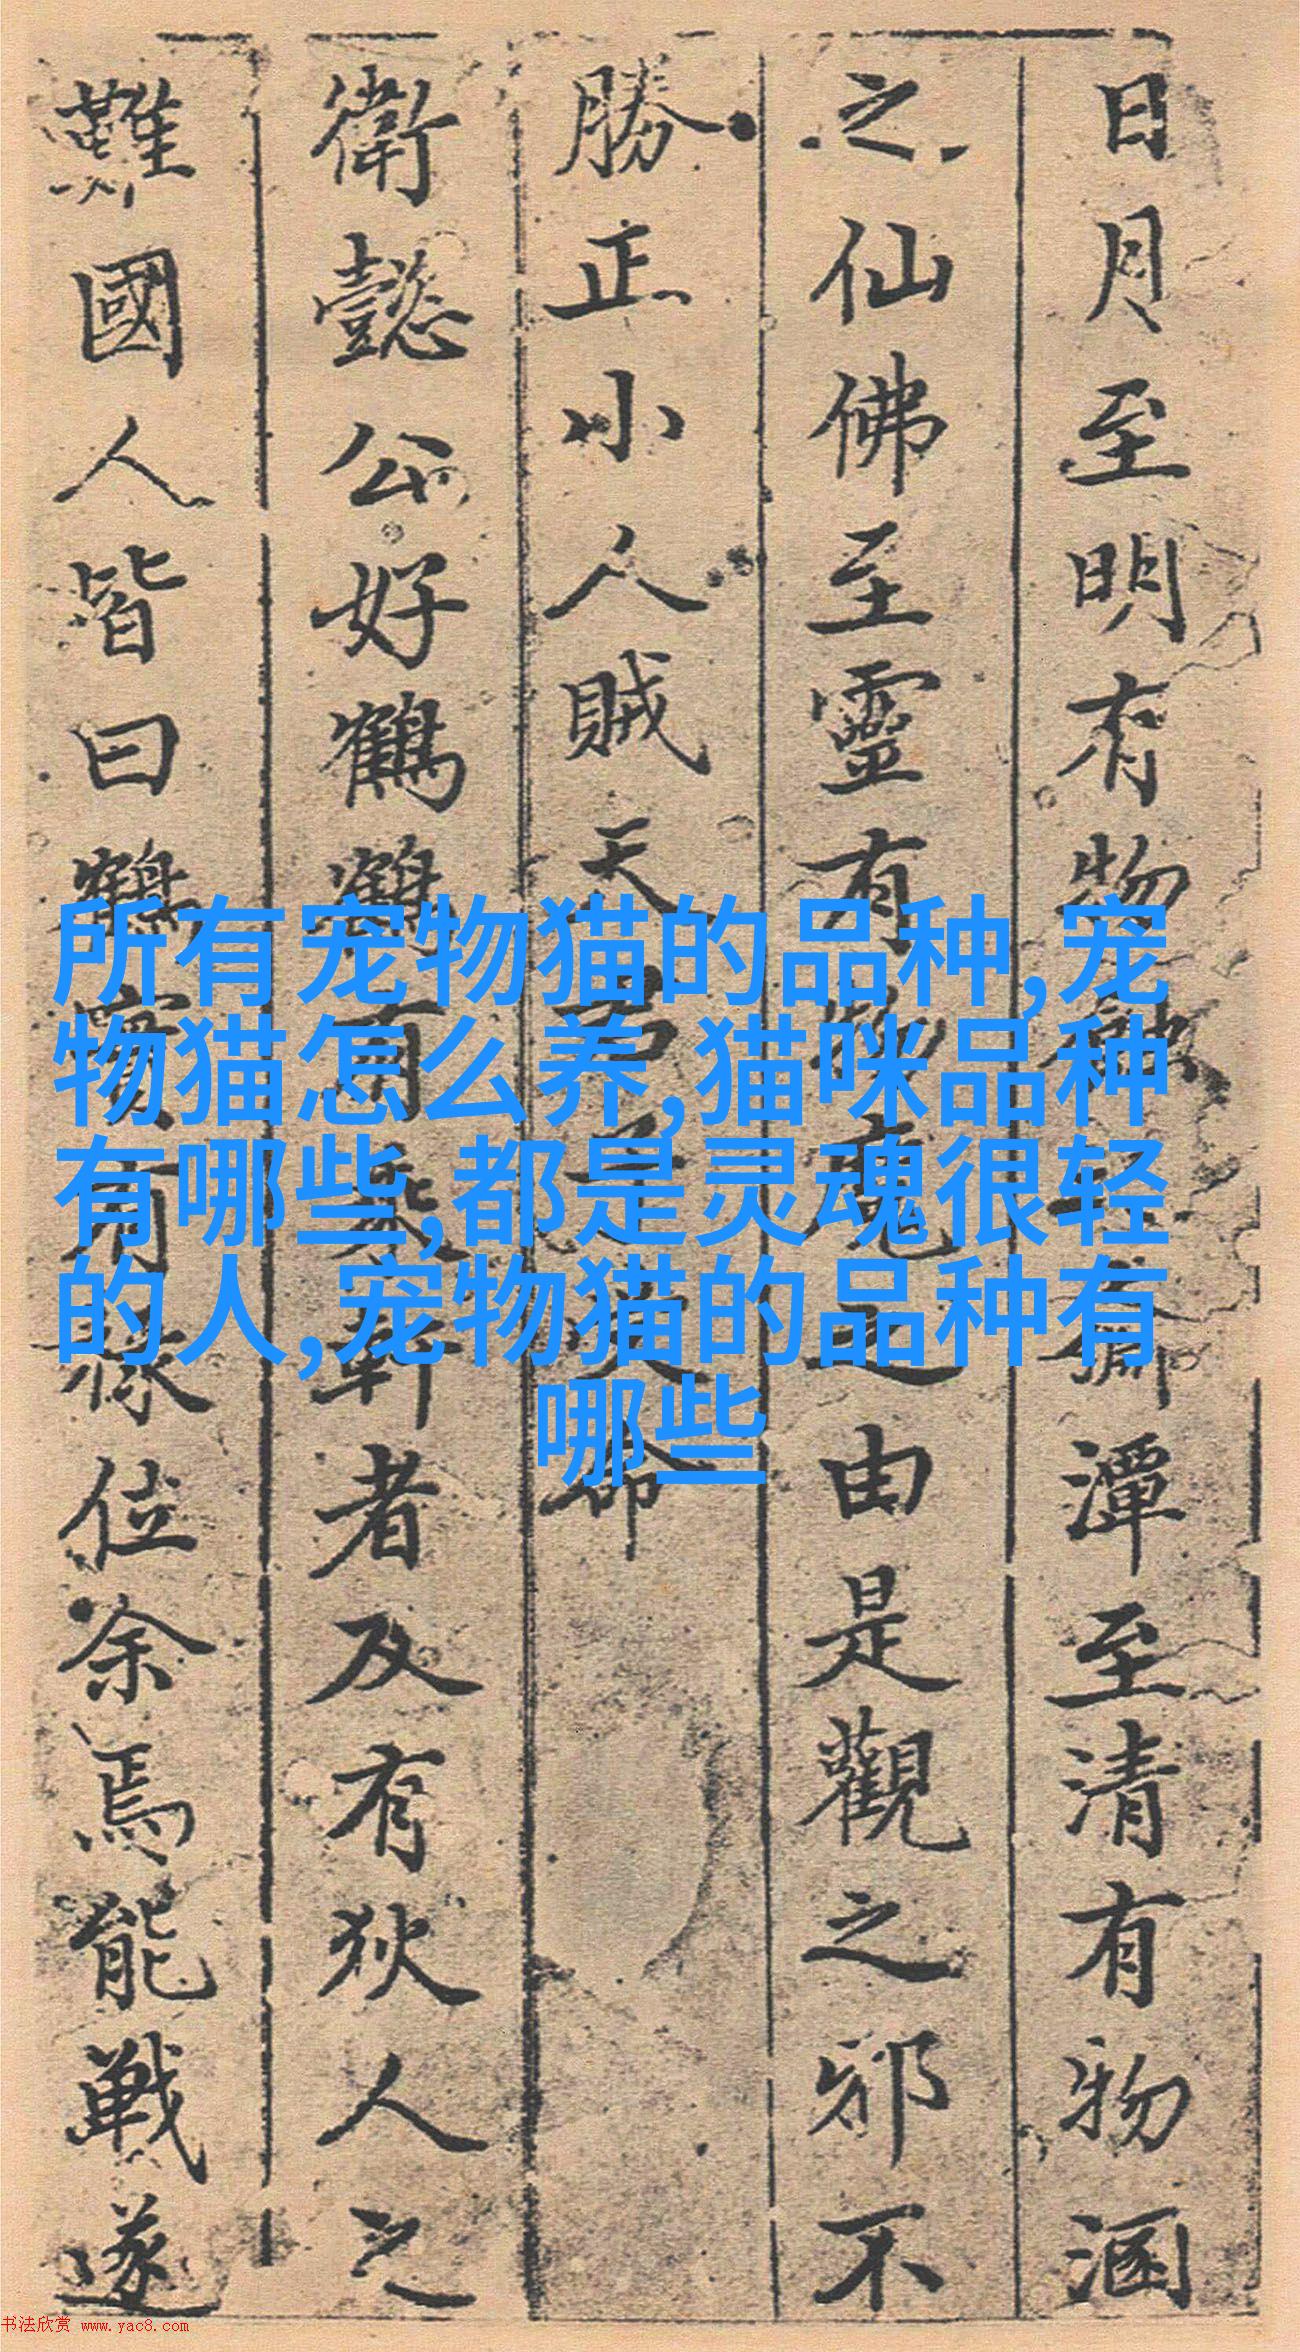 日月至明有物蝕之輕齋潭至清有物溷
之仙佛至靈有物魔之由是觀之邪不
勝正小人賊天
命
衛懿公好鶴鶴有乘軒者及有狄人之
難國人皆曰鶴實有祿位余焉能戰遂
所有宠物猫的品种,宠
物猫怎么养,猫咪品种
有哪些,都是灵魂很轻
的人,宠物猫的品种有
哪些
书法欣赏 www.yac8.com